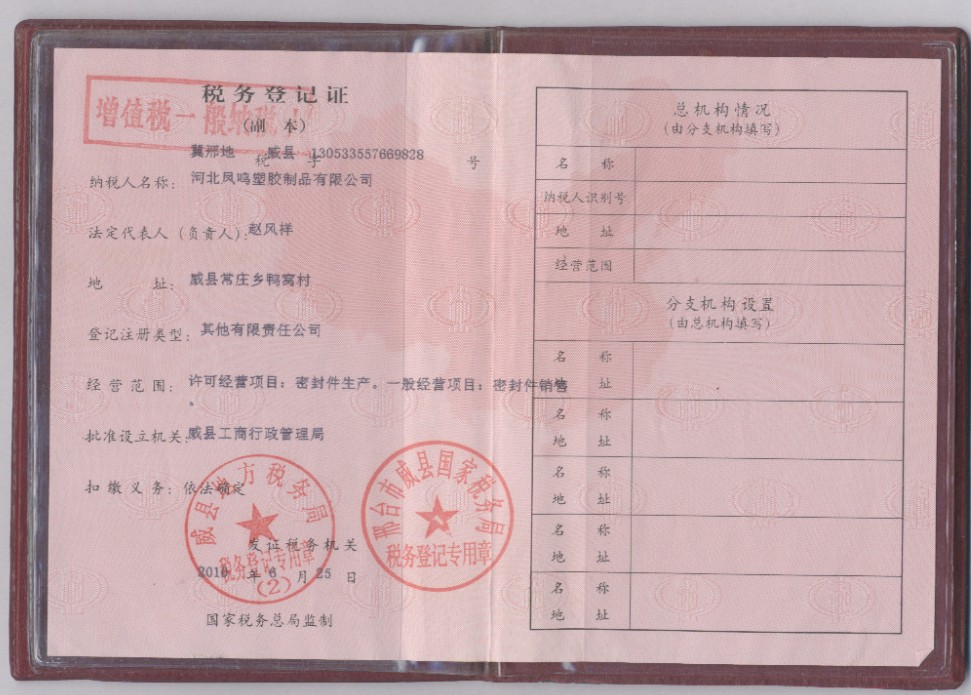 税务登记证
增值税一般纳税人
(副 本)
冀邢地 威县 130533557669828
税 字 号
纳税人名称: 河北凤鸣塑胶制品有限公司
法定代表人(负责人): 赵风祥
地 址: 威县常庄乡鸭窝村
登记注册类型: 其他有限责任公司
经营范围: 许可经营项目: 密封件生产。一般经营项目: 密封件销售
。
批准设立机关: 威县工商行政管理局
扣缴义务: 依法确定
威县地方税务局
税务登记专用章
(2)
邢台市威县国家税务局
税务登记专用章
发证税务机关
2010 年 6 月 25 日
国家税务总局监制
总机构情况
(由分支机构填写)
名 称
纳税人识别号
地 址
经营范围
分支机构设置
(由总机构填写)
名 称
地 址
名 称
地 址
名 称
地 址
名 称
地 址
名 称
地 址